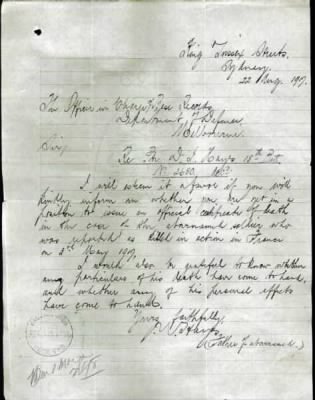 King & Sussex Streets.
Sydney
22 Aug. 1917.
The Officer in Charge Base Records
Department of Defence
Melbourne.
Sir,
Re Pte D. J. Hayes 18th Batt
No
I will esteem it a favor if you will
kindly inform me whether you are yet in a
position to issue an official certificate of death
in the case of the abovenamed soldier who
was reported as killed in action in France
on 3rd May 1917.
I would also be grateful to know whether
any particulars of his death have come to hand,
and whether any of his personal effects
have come to hand.
Yours faithfully
Hayes
(Father of abovenamed.)